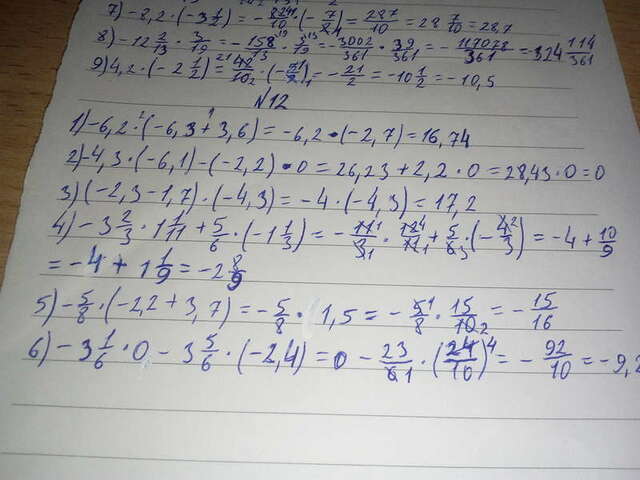 7) -8,2 · (-3 1/2) = - 82 41/10 · (- 7/2 1) = 287/10 = 28 7/10 = 28,7
8) -12 2/13 · 3/19 = - 158/13 · 3/19 = - 3002/361 · 39/361 = - 117078/361 = 324 114/361
9) 4,2 · (-2 1/2) = 21 42/10 2 · (- 5 1/2 1) = - 21/2 = -10 1/2 = -10,5
№12
1) -6,2 · (-6,3 + 3,6) = -6,2 · (-2,7) = 16,74
2) -4,3 · (-6,1) - (-2,2) · 0 = 26,23 + 2,2 · 0 = 28,43 · 0 = 0
3) (-2,3 - 1,7) · (-4,3) = -4 · (-4,3) = 17,2
4) -3 2/3 · 1 1/11 + 5/6 · (-1 1/3) = - 11 1/3 1 · 12 4/11 1 + 5/6 3 · (- 4 2/3) = -4 + 10/9
= -4 + 1 1/9 = -2 8/9
5) - 5/8 · (-2,2 + 3,7) = - 5/8 · 1,5 = - 5 1/8 · 15/10 2 = - 15/16
6) -3 1/6 · 0 - 3 5/6 · (-2,4) = 0 - 23/6 1 · (24/10) 4 = - 92/10 = -9,2